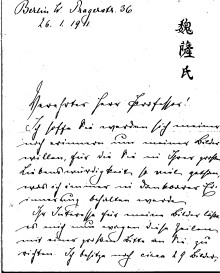 Berlin W. Pragerstr. 36
26. 1. 1911
魏隆民
Verehrter Herr Professor!
Ich hoffe Sie werden sich meiner
noch erinnern um meiner Bilder
willen, für die Sie in Ihrer großen
Liebenswürdigkeit so viel gethan,
was ich immer in dankbarer Er-
innerung behalten werde.
Ihr Interesse für meine Bilder läßt
es mich nun wagen diese Zeilen
mit einer großen Bitte an Sie zu
richten. Ich besitze noch einen 29 Bilder,